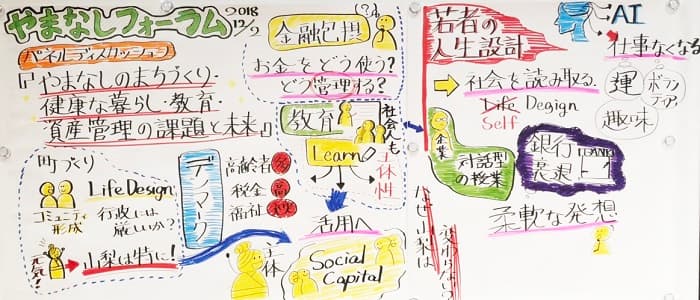 やまなしフォーラム
2018
12/2
パネルディスカッション
『やまなしのまちづくり・
健康な暮らし・教育・
資産管理の課題と未来』
町づくり
Life Design
コミュニティ
形成
行政には
厳しいか?
元気!
山梨は特に!
デンマーク
高齢者 多
税金 高
福祉
金融包摂
お金をどう使う?
どう管理する?
教育
Learn
社会人も
主体性
活用へ
主体
Social
Capital
若者の
人生設計
社会を読み取る
Life Degign
Self
企業
対話型
の授業
なぜ山梨は
AI
仕事なくなる
運
ボラン
ティア
趣味
銀行
衰退
BANK
柔軟な発想